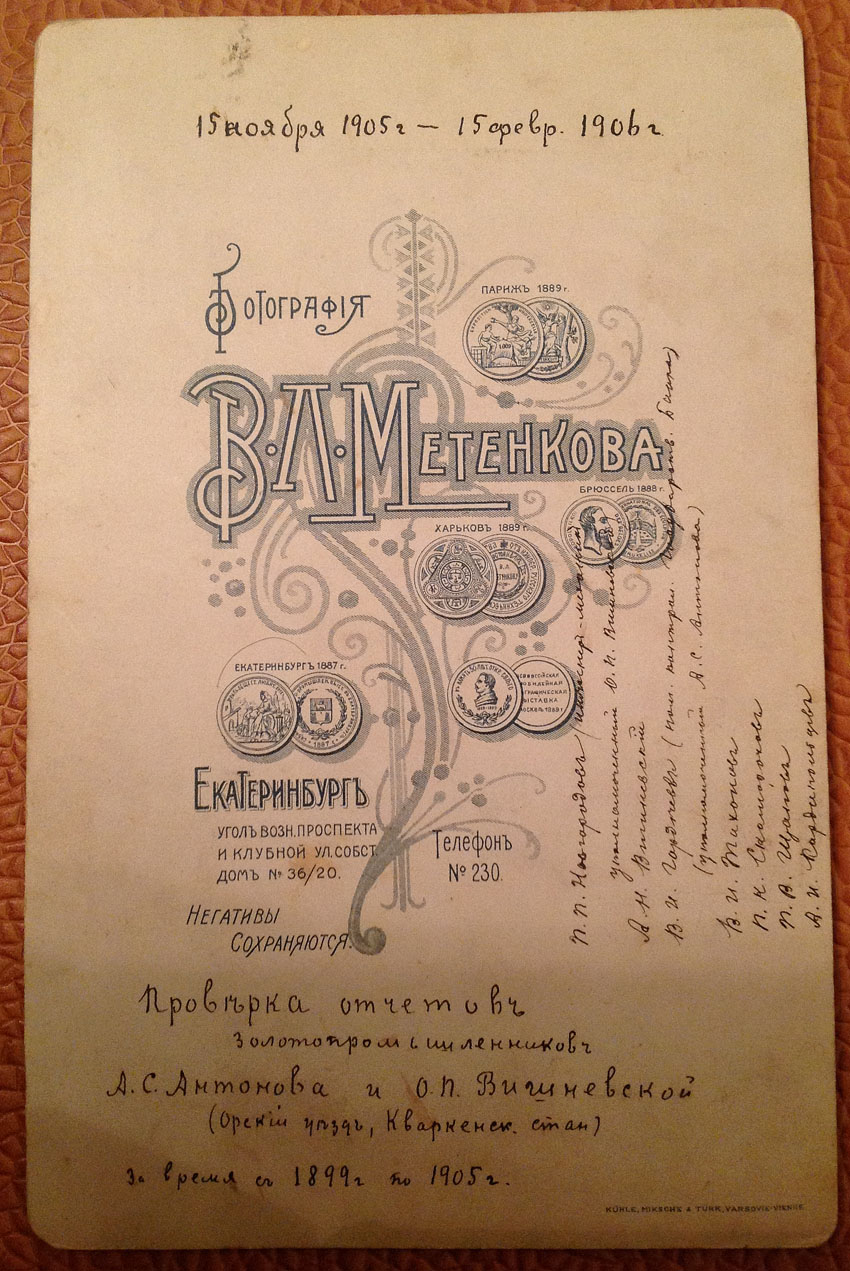 15 ноября 1905 г — 15 февр. 1906 г
Фотографія
ПАРИЖЪ 1889 г.
В·А·МЕТЕНКОВА
БРЮССЕЛЬ 1888 г.
ХАРЬКОВЪ 1889 г.
ЕКАТЕРИНБУРГЪ 1887 г.
ВЫСТАВКА
ЕКАТЕРИНБУРГЪ
УГОЛЪ ВОЗН. ПРОСПЕКТА
И КЛУБНОЙ УЛ. СОБСТ.
ДОМЪ № 36/20.
Телефонъ
№ 230.
НЕГАТИВЫ
СОХРАНЯЮТСЯ.
П. П. Новгородовъ
уполномоченный О. П. Вишневской
А. Н. Вишневскій
В. И. Гордѣевъ
(уполномоченный А. С. Антонова)
В. И. Тихоновъ
П. К.
П. В.
А. И.
Провѣрка отчетовъ
золотопромышленниковъ
А. С. Антонова и О. П. Вишневской
(Орскій уѣздъ, Кваркенск. стан)
За время съ 1899 г по 1905 г.
KÜHLE, MIKSCHE & TÜRK, VARSOVIE-VIENNE.